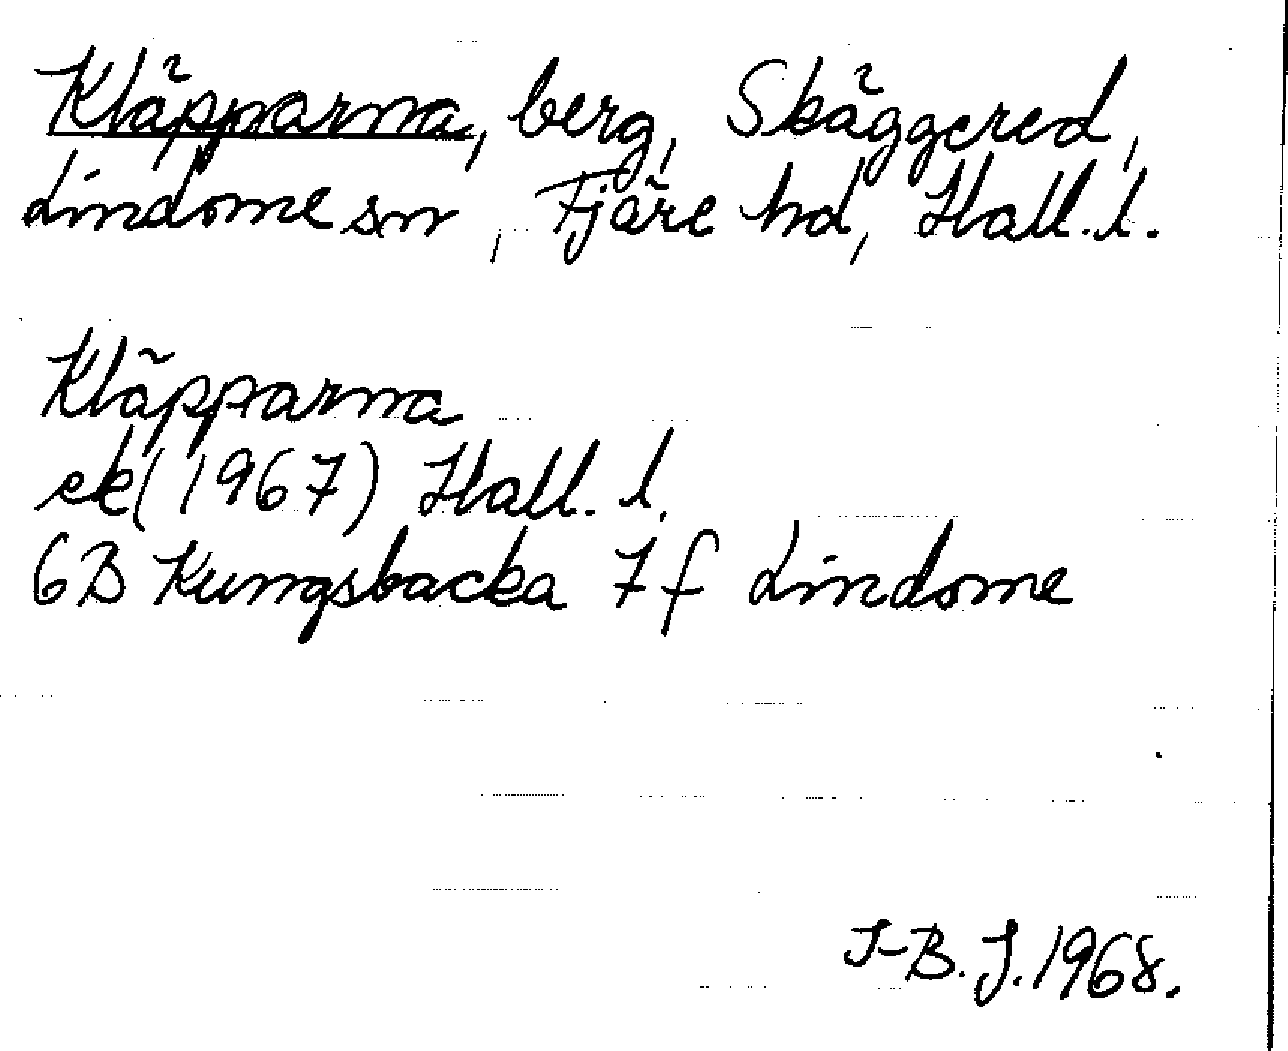 Kläpparna, berg, Skäggered,
Lindome sn, Fjäre hd, Hall. l.
Kläpparna
ek (1967) Hall. l.
6B Kungsbacka 7f Lindome
I-B. J. 1968.